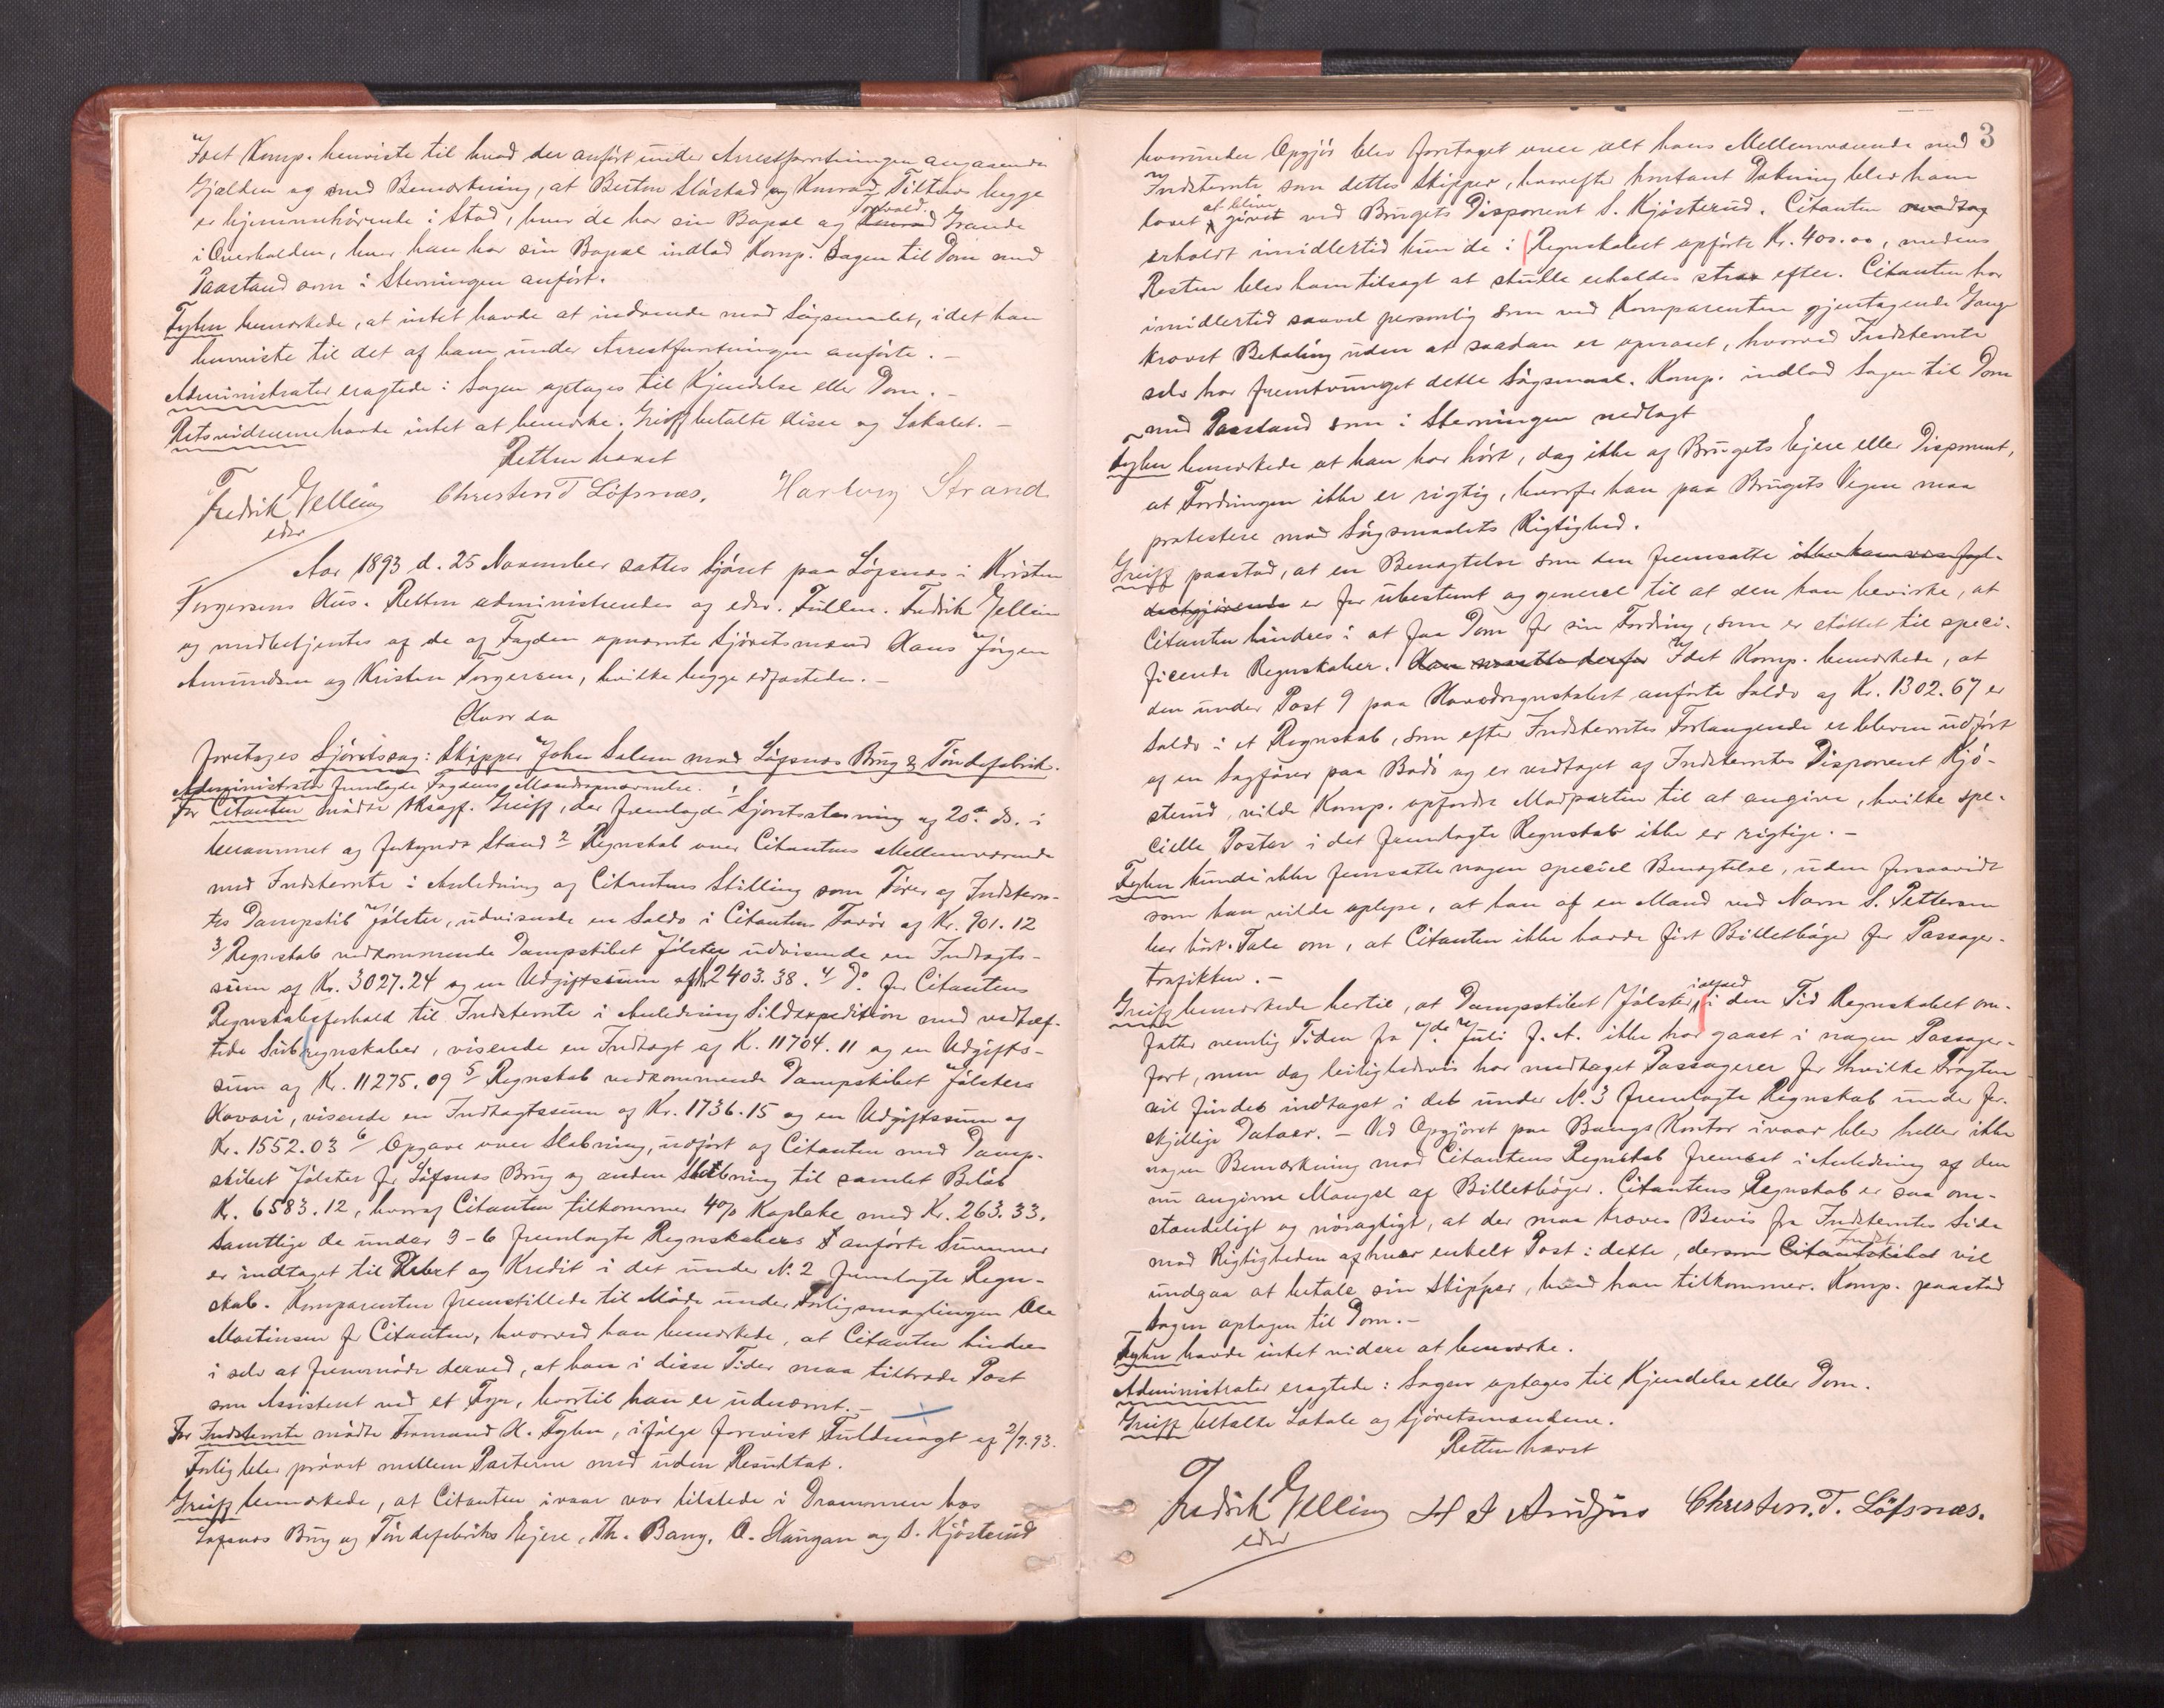 Idet Komp. henviste til hvad der anført under Arrestforretningen angaaende
Gjælden og med Bemærkning, at Berton Slöstad og Konrad Tiltnes begge
er hjemmehörende i Stod, hvor de har sin Bopæl og Konrad Torvald Grande
i Overhalden, hvor han har sin Bopæl indlod Komp. Sagen til Dom med
Paastand som i Stevningen anført.
Fyhn bemærkede, at intet havde at indvende mod Søgsmaalet, idet han
henviste til det af ham under Arrestforretningen anførte. -
Administrator eragtede: Sagen optages til Kjendelse eller Dom. -
Retsvidnerne havde intet at bemærke. Greiff betalte disse og Lokalet. -
Retten hævet
Fredrik Gelling Christen T Löfsnæs. Hartvig Strand
edsv
Aar 1893 d. 25 November sattes Sjøret paa Løfsnæs i Kristen
Torgersens Hus. Retten administreredes af edsv. Fuldm. Fredrik Gelling
og medbetjentes af de af Fogden opnævnte Sjøretsmænd Hans Jörgen
Amundsen og Kristen Torgersen, hvilke begge edfæstedes. -
Hvor da
foretoges Sjøretssag: Skipper John Salem mod Löfsnæs Brug & Töndefabrik.
Administrator fremlagde Fogdens Mandsopnævnelse. 1
For Citanten mødte Oksagf. Greiff, der fremlagde Sjøretsstevning af 20de ds. i
berammet og forkyndt Stand 2 Regnskab over Citantens Mellemværende
med Indstevnte i Anledning af Citantens Stilling som Fører af Indstevn-
tes Dampskib Jölster, udvisende en Saldo i Citantens Favör af Kr. 901.12
3/ Regnskab vedkommende Dampskibet Jölster udvisende en Indtægts-
sum af Kr. 3027.24 og en Udgiftssum af Kr 2403.38. 4/ Do. for Citantens
Regnskabsforhold til Indstevnte i Anledning Sildexpedition med vedhæf-
tede Subregnskaber, visende en Indtægt af K. 11704.11 og en Udgifts-
sum af Kr. 11275.09 5/ Regnskab vedkommende Dampskibet Jölsters
Havari, visende en Indtægtssum af Kr. 1736.15 og en Udgiftssum af
Kr. 1552.03 6/ Opgave over Slæbning, udført af Citanten med Damp-
skibet Jölster for Löfsnæs Brug og anden Slæbning til samlet Beløb
Kr. 6583.12, hvoraf Citanten tilkommer 4% Kaplake med Kr. 263.33.
Samtlige de under 3-6 fremlagte Regnskabers anførte Summer
er indtaget til Debet og Kredit i det under N. 2 fremlagte Regn-
skab. Komparenten fremstillede til Møde under Forligsmæglingen Ole
Martinsen for Citanten, hvorved han bemærkede, at Citanten hindres
i selv at fremmøde derved, at han i disse Tider maa tiltræde Post
som Assistent ved et Fyr, hvortil han er udnævnt. -
For Indstevnte mødte Formand H. Fyhn, ifølge forevist Fuldmagt af 2/9.93.
Forlig blev prøvet mellem Parterne med uden Resultat.
Greiff bemærkede, at Citanten ivaar var tilstede i Drammen hos
Løfsnæs Brug og Töndefabriks Eiere, Th. Bang, O. Haugan og S. Kjösterud
3
hvorunder Opgjør blev foretaget over alt hans Mellemværende med
Indstevnte som dettes Skipper, hvorefter kontant Dækning blev ham
lovet at blive gjøret ved Brugets Disponent S. Kjösterud. Citanten modtog
erholdt imidlertid kun de i Regnskabet opførte Kr. 400.00, medens
Resten blev ham tilsagt at skulle erholdes strax efter. Citanten har
imidlertid saavel personlig som ved Komparenten gjentagende Gange
krævet Betaling uden at saadan er opnaaet, hvorved Indstevnte
selv har fremtvunget dette Søgsmaal. Komp. indlod Sagen til Dom
med Paastand som i Stevningen nedlagt
Fyhn bemærkede at han har hørt, dog ikke af Brugets Eiere eller Disponent,
at Fordringen ikke er rigtig, hvorfor han paa Brugets Vegne maa
protestere mod Søgsmaalets Rigtighed.
Greiff paastod, at en Benægtelse som den fremsatte ikke kan
er for ubestemt og generel til at den kan bevirke, at
Citanten hindres i at faa Dom for sin Fordring, som er støttet til speci-
ficerede Regnskaber. Han derfor Idet Komp. bemærkede, at
den under Post 9 paa Hovedregnskabet anførte Saldo af Kr. 1302.67 er
Saldo i et Regnskab, som efter Indstevntes Forlangende er bleven udført
af en Sagfører paa Bodö og er vedtaget af Indstevntes Disponent Kjö-
sterud, vilde Komp. opfordre Modparten til at angive, hvilke spe-
cielle Poster i det fremlagte Regnskab ikke er rigtige. -
Fyhn kunde ikke fremsætte nogen speciel Benægtelse, uden forsaavidt
som han vilde oplyse, at han af en Mand ved Navn S. Pettersen
har hørt Tale om, at Citanten ikke havde ført Billetbøger for Passager-
trafikken. -
Greiff bemærkede hertil, at Dampskibet Jölster, ialfald i den Tid Regnskabet om-
fatter nemlig Tiden fra 7de Juli f. A. ikke har gaaet i nogen Passager-
fart, men dog leilighedsvis har medtaget Passagerer for hvilke Fragten
vil findes indtaget i det under N. 3 fremlagte Regnskab under for-
skjellige Datoer. - Ved Opgjøret paa Bangs Kontor ivaar blev heller ikke
nogen Bemærkning mod Citantens Regnskab fremsat i Anledning af den
nu angivne Mangel af Billetbøger. Citantens Regnskab er saa om-
stændeligt og nøiagtigt, at der maa kræves Bevis fra Indstevntes Side
mod Rigtigheden af hver enkelt Post i dette, dersom Indst vil
undgaa at betale sin Skipper, hvad han tilkommer. Komp. paastod
Sagen optagen til Dom. -
Fyhn havde intet videre at bemærke.
Administrator eragtede: Sagen optages til Kjendelse eller Dom.
Greiff betalte Lokale og Sjøretsmændene.
Retten hævet
Fredrik Gelling H J Christen. T. Löfsnæs.
edsv